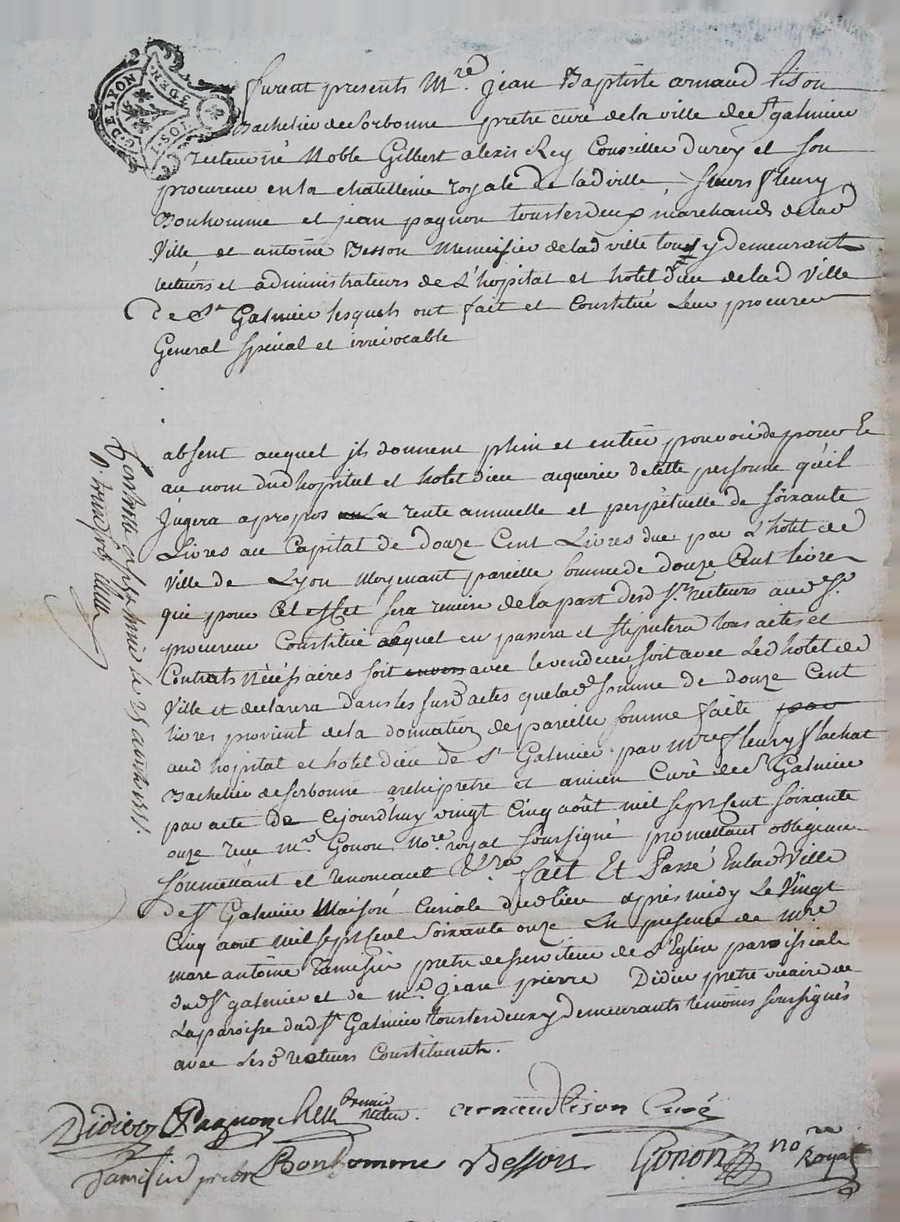 G. DE LYON
3. DEN
1. SOL
furent presents Mre. jean Baptiste arnaud tison
Bachelier de sorbonne pretre curé de la ville de st galmier
recteur né Noble Gilbert alexis Rey Conseiller du roy et son
procureur en la chatellenie royale de lad ville, sieurs fleury
Bonhomme et jean pagnon tous les deux marchands de lad
Ville et antoine Besson Menuisier de lad ville tous y demeurant
recteurs et administrateurs de L'hopital et hotel Dieu de lad Ville
De St Galmier lesquels ont fait et Constitué Leur procureur
General spécial et irrévocable
absent auquel ils donnent plein et entier pouvoir de pour Et
au nom dud hopital et hotel dieu acquerir de telle personne qu'il
jugera apropos rente annuelle et perpétuelle de soixante
Livres au Capital de douze Cent Livres due par L'hotel de
Ville de Lyon Moyenant pareille somme de douze Cent livres
qui pour Cet effet sera remise de la part desd Srs recteurs aud Sr.
procureur Constitué Lequel en passera et stipulera tous actes et
Contrats nécéssaires soit avec le vendeur, soit avec Led hotel de
Ville et déclarera dans les susd actes que lad somme de douze Cent
livres provient de la donnation de pareille somme faite
aud hopital et hotel dieu de St Galmier par Mre fleury flachat
Bachelier de sorbonne archipretre et ancien Curé de St Galmier
par acte De cejourdhuy vingt Cinq août mil sept Cent soixante
onze reçu me. Gonon Nore. royal soussigné promettant obligeant
soumettant et renonçant fait Et Passé En lad Ville
de St Galmier Maison Curiale dud lieu après midy Le Vingt
Cinq aout mil sept Cent soixante onze En presence de Mre
marc antoine Tamisier pretre desserviteur de L'Eglise paroissiale
dud St galmier et de Me. jean pierre Didier pretre vicaire de
La paroisse dud St Galmier tous les deux y demeurants temoins soussignés
avec Lesd recteurs Constituant.
Didier Pagnon Rey Premier recteur. arnaud tison Curé
Tamisier pretre Bonhomme Besson Gonon nore Royal